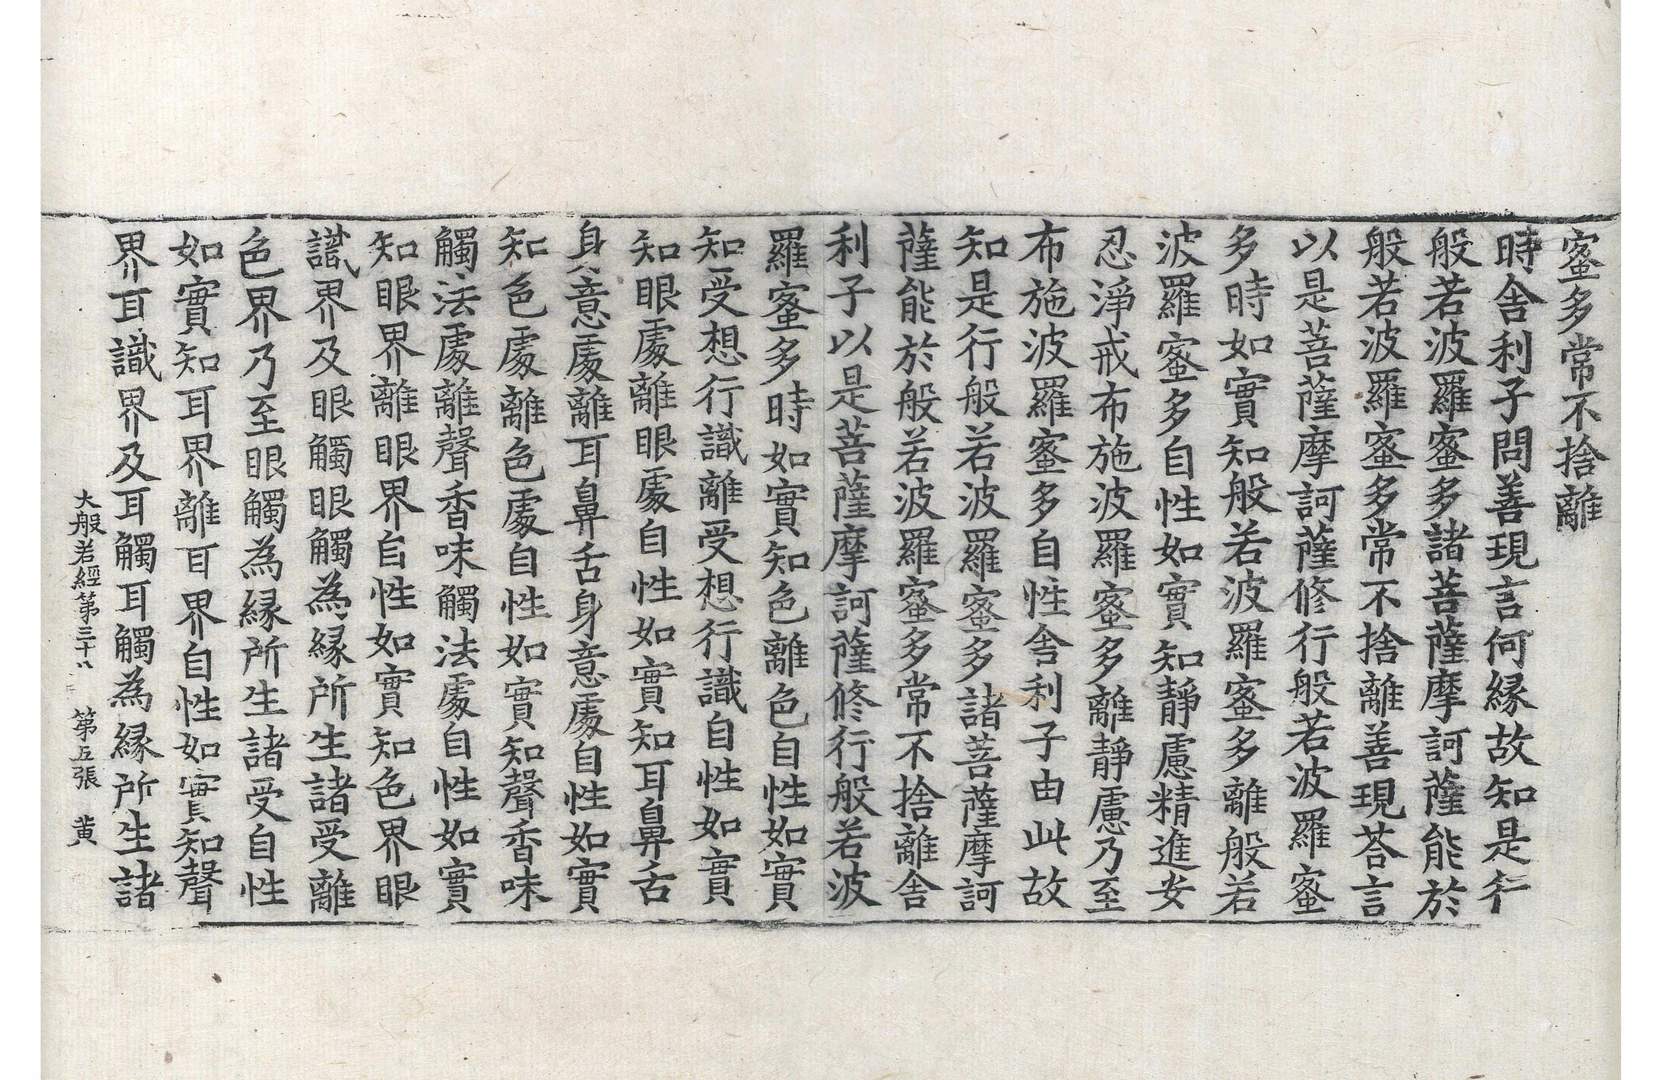 蜜多常不捨離
時舍利子問善現言何緣故知是行
般若波羅蜜多諸菩薩摩訶薩能於
般若波羅蜜多常不捨離善現荅言
以是菩薩摩訶薩修行般若波羅蜜
多時如實知般若波羅蜜多離般若
波羅蜜多自性如實知靜慮精進安
忍淨戒布施波羅蜜多離靜慮乃至
布施波羅蜜多自性舍利子由此故
知是行般若波羅蜜多諸菩薩摩訶
薩能於般若波羅蜜多常不捨離舍
利子以是菩薩摩訶薩修行般若波
羅蜜多時如實知色離色自性如實
知受想行識離受想行識自性如實
知眼處離眼處自性如實知耳鼻舌
身意處離耳鼻舌身意處自性如實
知色處離色處自性如實知聲香味
觸法處離聲香味觸法處自性如實
知眼界離眼界自性如實知色界眼
識界及眼觸眼觸為緣所生諸受離
色界乃至眼觸為緣所生諸受自性
如實知耳界離耳界自性如實知聲
界耳識界及耳觸耳觸為緣所生諸
大般若經第三十八 第五張 黄